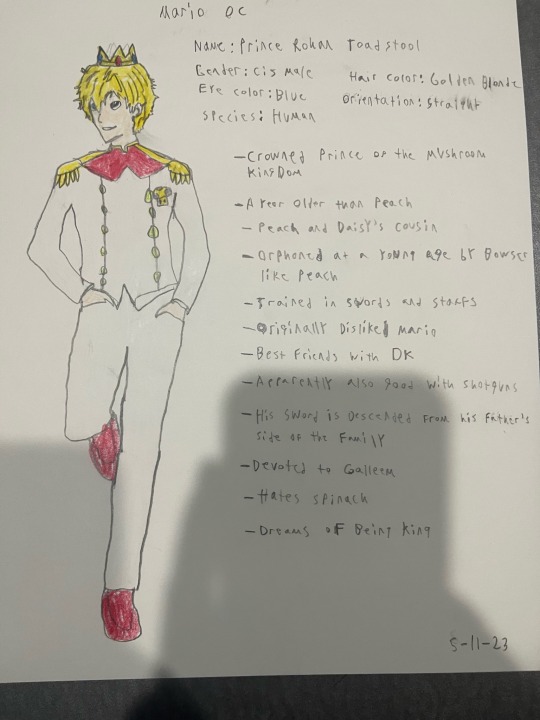 Mario OC
Name: Prince Rohan Toadstool
Gender: Cis male
Hair color: Golden Blonde
Eye color: Blue
Orientation: Straight
Species: Human
- Crowned Prince of the Mushroom
Kingdom
- A year older than Peach
- Peach and Daisy's cousin
- Orphaned at a young age by Bowser
like Peach
- Trained in swords and staffs
- Originally Disliked Mario
- Best Friends with DK
- Apparently also good with shotguns
- His sword is Descended from his father's
side of the Family
- Devoted to Galleem
- Hates spinach
- Dreams of Being King
5-11-23